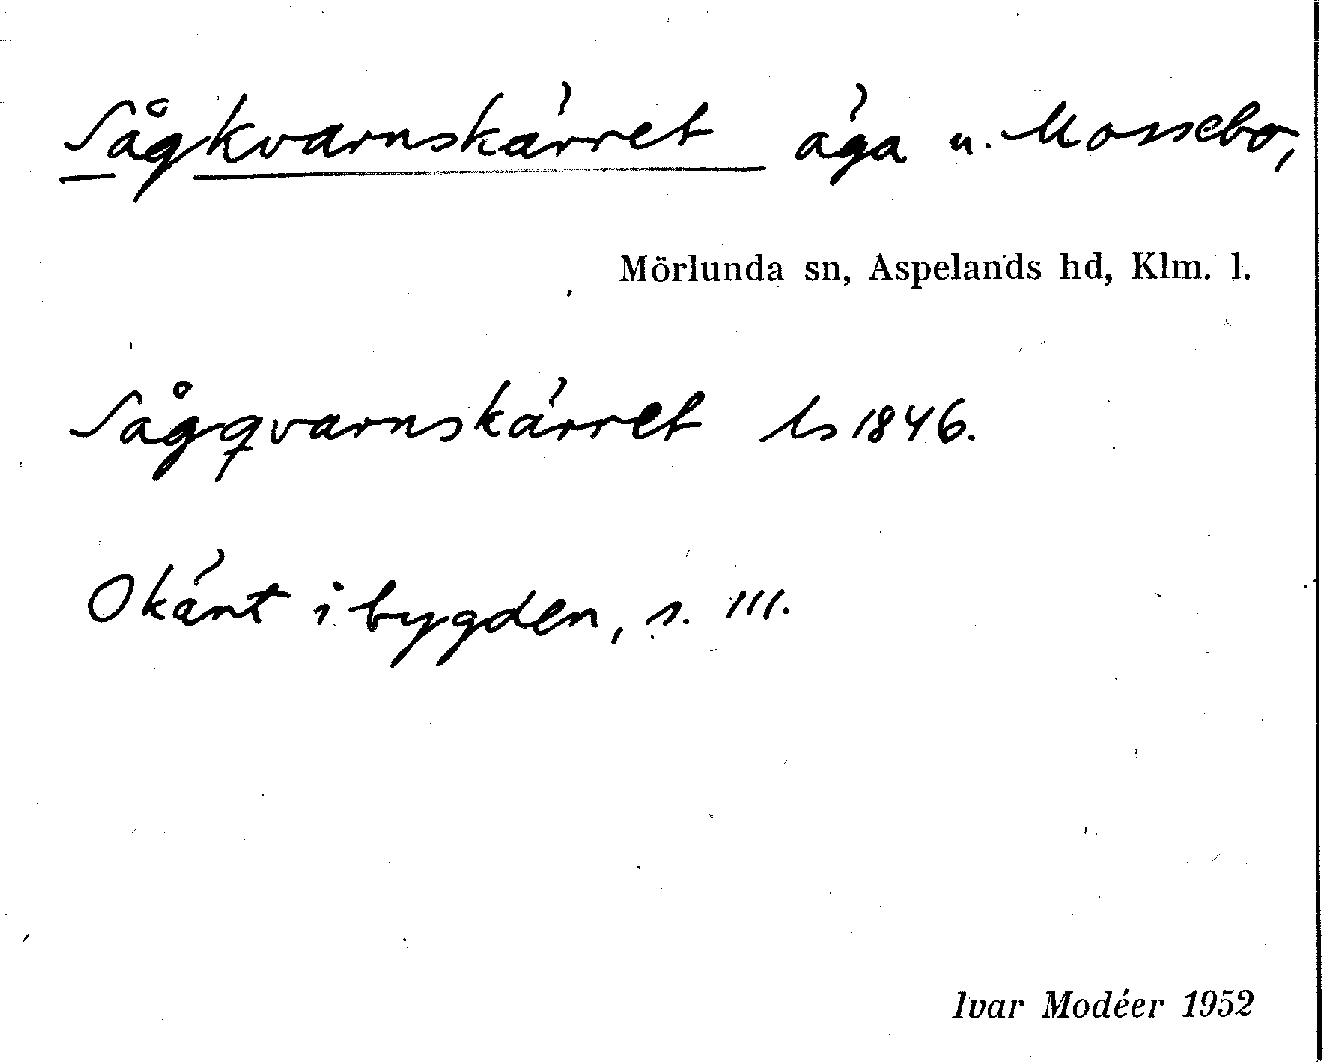 Sågkvarnskärret äga u. Mossebo,
Mörlunda sn, Aspelands hd, Klm. l.
Sågqvarnskärret ls 1846.
Okänt i bygden, s. 111.
Ivar Modéer 1952